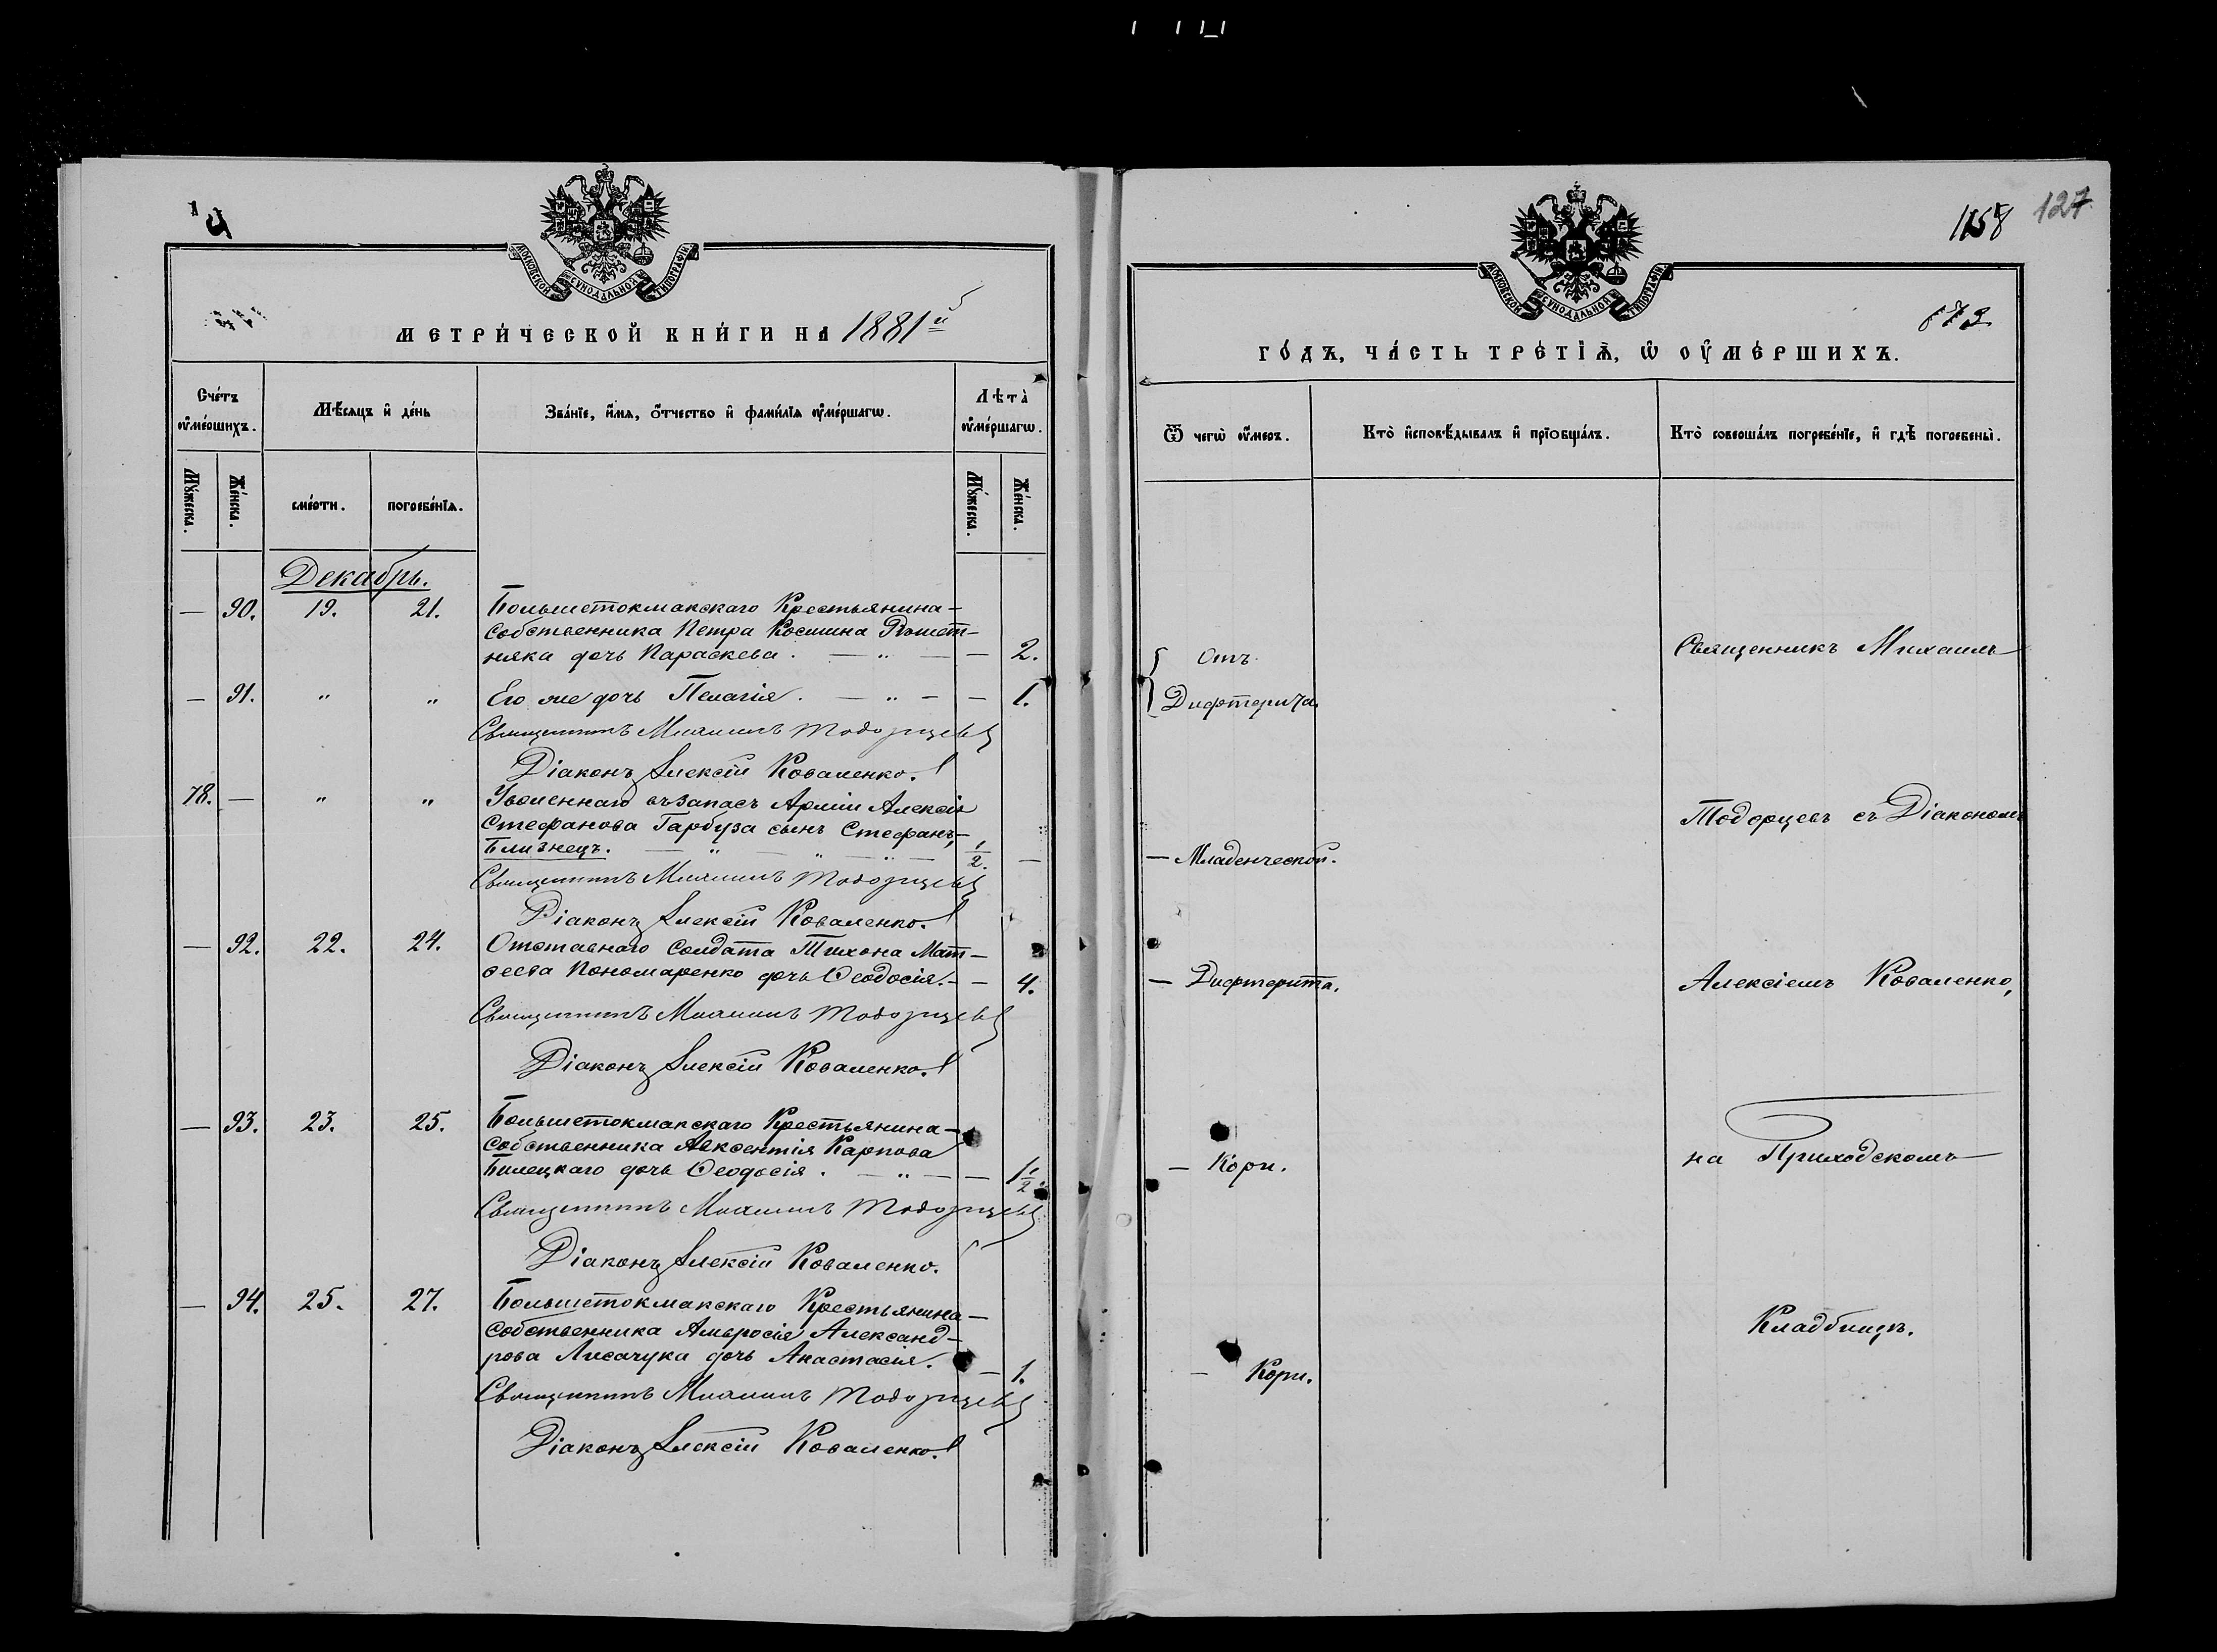 МОСКОВСКОЙ СѴНОДАЛЬНОЙ ТИПОГРАФІИ
МЕТРИ́ЧЕСКОЙ КНИ́ГИ НА 1881й
Сче́тъ ᲂу҆ме́ршихъ.
Мѣ́сяцъ и҆ де́нь
Зва́нїе, и҆́мѧ, ѻ҆́тчество и҆ фами́лїѧ ᲂу҆ме́ршагѡ.
Лѣта̀ ᲂу҆ме́ршагѡ.
Мꙋ́жеска.
Же́нска.
сме́рти.
погребе́нїѧ.
Мꙋ́жеска.
Же́нска.
Декабрь.
— 90. 19. 21. Большетокмакскаго Крестьянина-
собственника Петра Космина Рѣшет-
няка дочь Параскева. — „ — — 2.
— 91. „ „ Его же дочь Пелагія. — „ — — 1.
Священникъ Михаилъ Тодорцевъ
Діаконъ Алексій Коваленко.
78. — „ „ Уволеннаго въ запасъ Арміи Алексія
Стефанова Гарбуза сынъ Стефанъ,-
Близнецъ. — „ — „ — „ — 1/2. —
Священникъ Михаилъ Тодорцевъ
Діаконъ Алексій Коваленко.
— 92. 22. 24. Отставнаго Солдата Тихона Мат-
ѳеева Пономаренко дочь Ѳеодосія. — — 4.
Священникъ Михаилъ Тодорцевъ
Діаконъ Алексій Коваленко.
— 93. 23. 25. Большетокмакскаго Крестьянина-
собственника Авксентія Карпова
Билецкаго дочь Ѳеодосія. — „ — — 1 1/2.
Священникъ Михаилъ Тодорцевъ
Діаконъ Алексій Коваленко.
— 94. 25. 27. Большетокмакскаго Крестьянина-
собственника Амвросія Александ-
рова Лисачука дочь Анастасія. — 1.
Священникъ Михаилъ Тодорцевъ
Діаконъ Алексій Коваленко.
1158 127
МОСКОВСКОЙ СѴНОДАЛЬНОЙ ТИПОГРАФІИ
ГО́ДЪ, ЧА́СТЬ ТРЕ́ТЇѦ, Ѡ҆ ОУ҆МЕ́РШИХЪ.
Ѿ чегѡ̀ ᲂу҆́меръ.
Кто̀ и҆сповѣ́дывалъ и҆ прїѻбща́лъ.
Кто̀ соверша́лъ погребе́нїе, и҆ гдѣ̀ погребены̀.
Отъ
Дифтерита.
Священникъ Михаилъ
Тодорцевъ съ Діакономъ
— Младенческой.
— Дифтерита.
Алексіемъ Коваленко,
— Кори.
на Приходскомъ
Кладбищѣ.
— Кори.